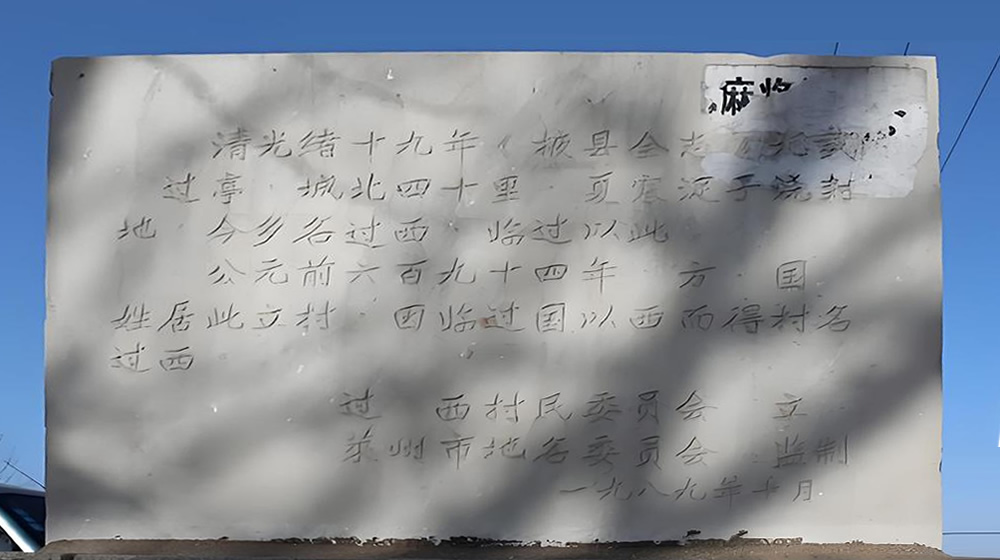 麻将
清光绪十九年《掖县全志》记载
过亭 城北四十里 夏寒浞子浇封
地 今乡名过西 临过以此
公元前六百九十四年 方 国
姓居此立村 因临过国以西而得村名
过西
过 西村民委员会 立
莱州市地名委员会 监制
一九八九年十月